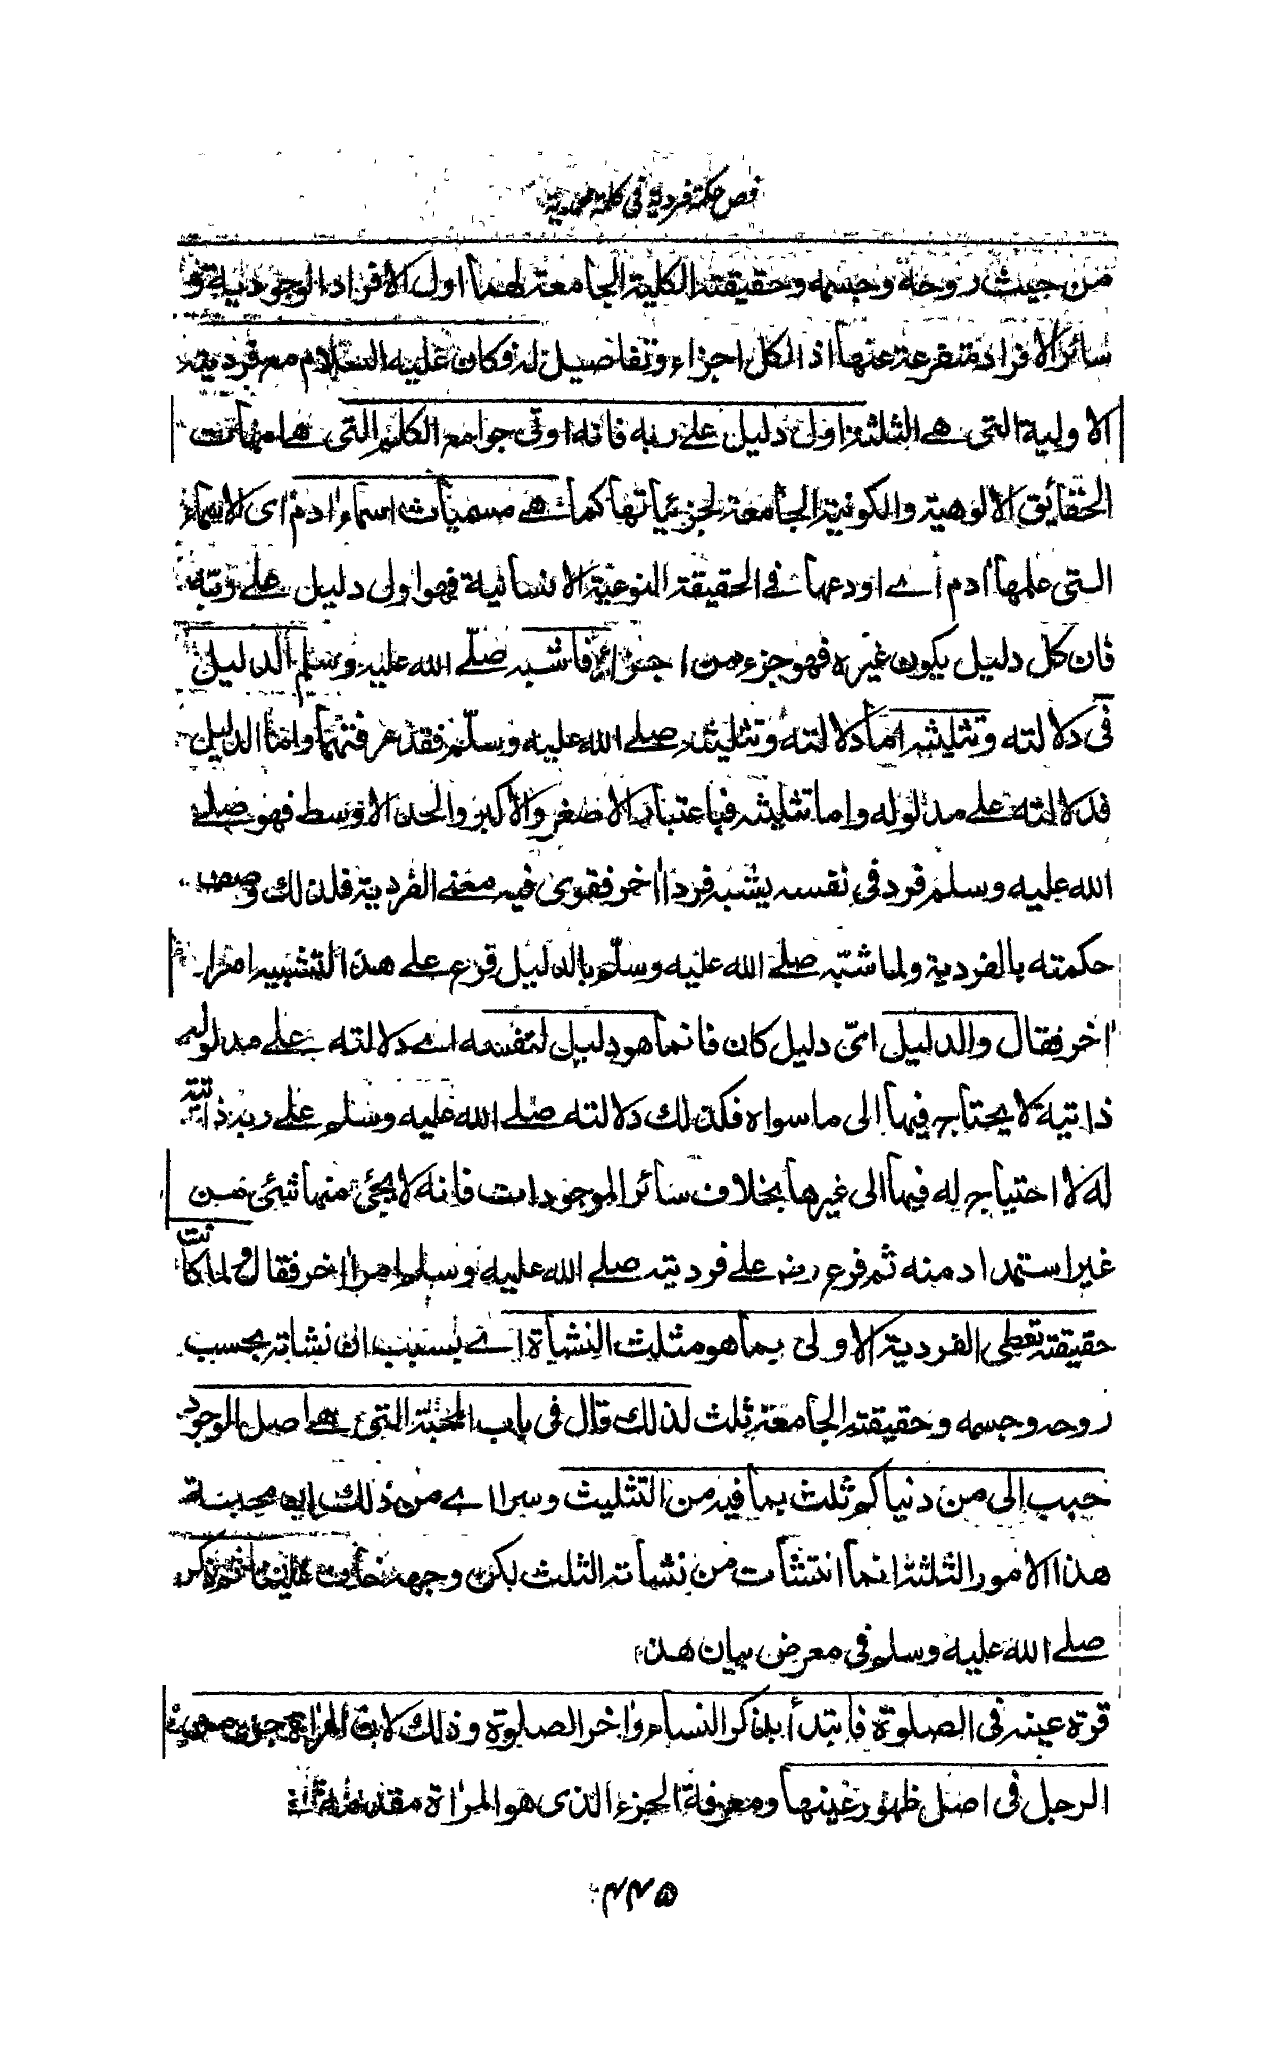 فص حكمة فردية في كلمة محمدية
من حيث روحه وجسمه وحقيقته الكلية الجامعة لهما اول الافراد الوجودية و
سائر الافراد متفرعة عنها اذ الكل اجزاء وتفاصيل له فكان عليه السلام مع فرديته
الاولية التى هے الثلثة اول دليل علے ربه فانه اوتى جوامع الكلم التى هے امهات
الحقائق الالوهية والكونية الجامعة لجزئياتها كما هے مسميات اسماء ادم اى الاسماء
التى علمها ادم اے اودعها فے الحقيقة النوعية الانسانية فهو اولى دليل علے ربه
فان كل دليل يكون غيره فهو جزء من اجزائه فاشبه صلّے الله عليه وسلم الدليل
فى دلالته وتثليثه اما دلالته وتثليثه صلے الله عليه وسلّم فقد عرفتهما واما الدليل
فدلالته علے مدلوله واما تثليثه فباعتبار الاصغر والاكبر والحد الاوسط فهو صلے
الله عليه وسلم فرد فى نفسه يشبه فردا اخر فقوى فيه معنے الفردية فلذلك وصف
حكمته بالفردية ولما شبّه صلے الله عليه وسلّم بالدليل فرع علے هذا التشبيه امرا
اخر فقال والدليل اىّ دليل كان فانما هو دليل لنفسه اے دلالته علے مدلوله
ذاتية لا يحتاج فيها الى ما سواه فكذلك دلالته صلے الله عليه وسلم علے ربه ذاتية
له لا احتياج له فيها الى غيرها بخلاف سائر الموجودات فانه لا يجئ منها شئ من
غير استمداد منه ثم فرع رضه علے فرديته صلے الله عليه وسلم امرا اخر فقال ولما كانت
حقيقته تعطى الفردية الاولى بما هو مثلث النشاة اے بسبب ان نشاته بحسب
روحه وجسمه وحقيقته الجامعة ثلث لذلك قال فى باب المحبة التى هے اصل الوجود
حبب الى من دنياكم ثلث بما فيه من التثليث وسرا اے من ذلك ان محبة
هذا الامور الثلثة انما انتشأت من نشاته الثلث لكن وجهه
صلے الله عليه وسلم فى معرض بيان هذه
قرة عينه فى الصلوة فابتدأ بذكر النساء واخر الصلوة وذلك لان المراة جزء من
الرجل فى اصل ظهور عينها ومعرفة الجزء الذى هو المراة مقدمة
۴۴۵